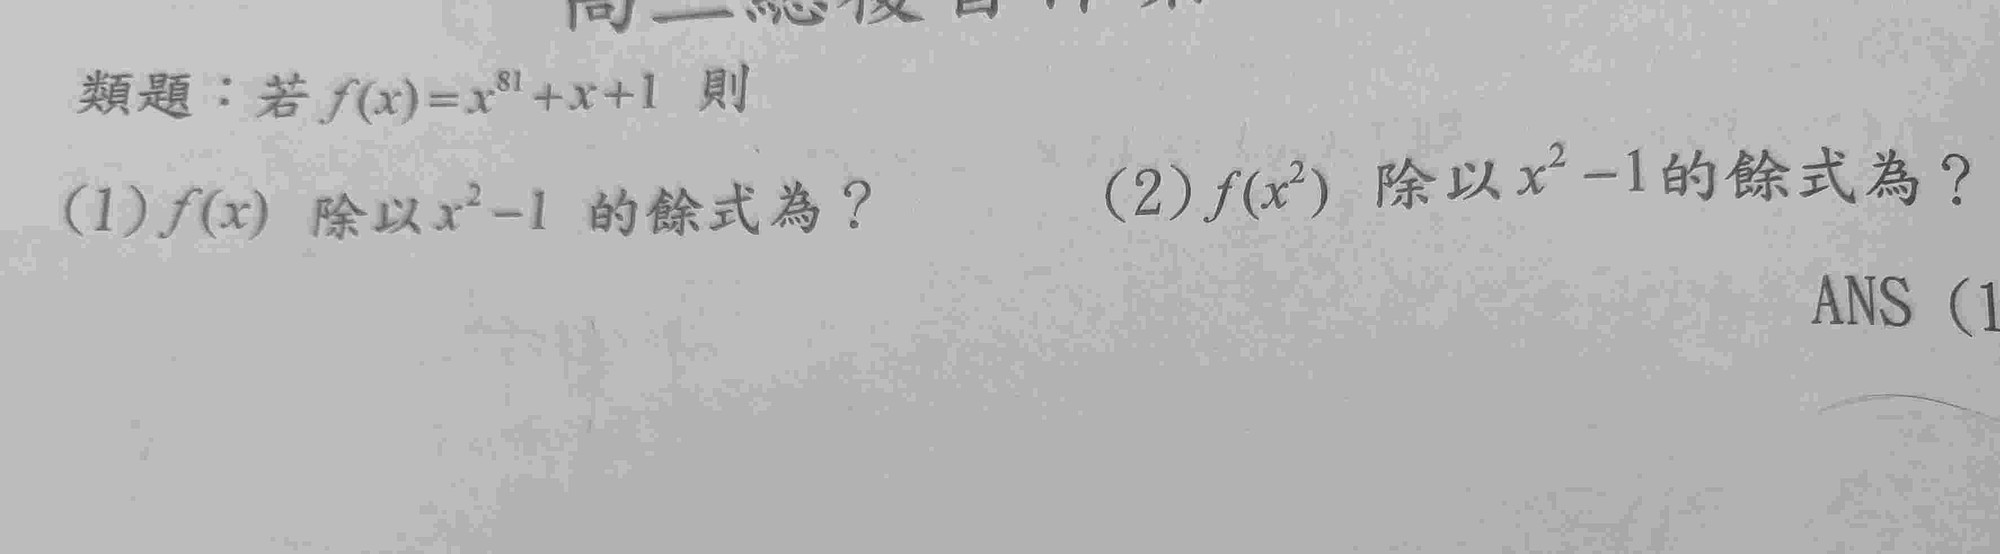 類題：若 f(x)=x⁸¹+x+1 則
(1) f(x) 除以 x²-1 的餘式為？ (2) f(x²) 除以 x²-1 的餘式為？
ANS (1